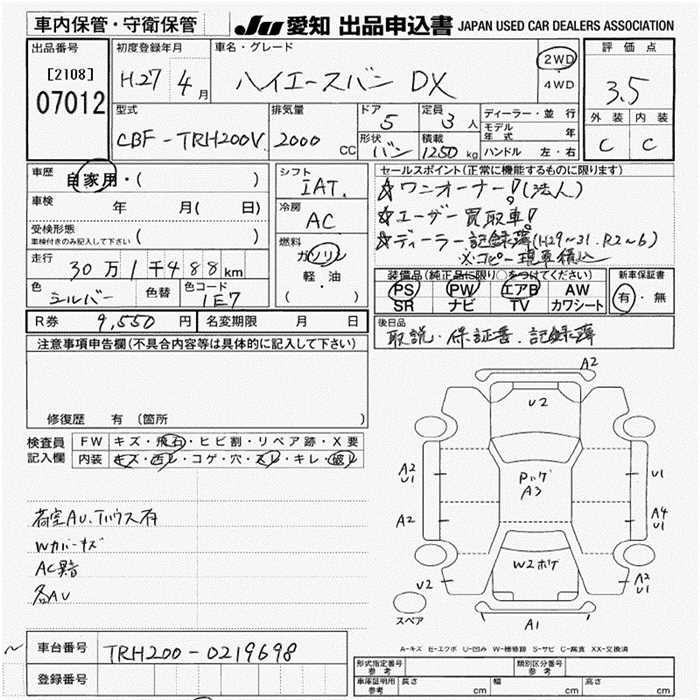 車内保管・守衛保管
JU 愛知 出品申込書 JAPAN USED CAR DEALERS ASSOCIATION
出品番号 初度登録年月 車名・グレード 評価点
[2108] H.27 4月 ハイエースバン DX 2WD 3.5
07012 4WD
外装 内装
C C
型式 排気量 ドア 定員 ディーラー・並行
CBF-TRH200V 2000CC 5 3人 モデル年式 年
形状 積載 ハンドル 左・右
バン 1250kg
車歴 自家用・( )
シフト
IAT.
車検 年 月(日)
冷房
AC
受検形態 ( )
車検付きのみ記入して下さい
燃料
ガソリン
軽・油
( )
走行 30万1千488km
色 シルバー 色替 色コード 1E7
R券 9,550円 名変期限 月 日
セールスポイント(正常に機能するものに限ります)
☆ワンオーナー!(法人)
☆ユーザー買取車!
☆ディーラー記録簿(H29~31.R2~6)
※コピー現車積込
装備品(純正品は限り○をつけてください) 新車保証書
PS PW エアB AW 有・無
SR ナビ TV カワシート
後日品
取説・保証書・記録簿
注意事項申告欄(不具合内容等は具体的に記入して下さい)
修復歴 有(箇所 )
検査員 FW キズ・飛石・ヒビ割・リペア跡・X要
記入欄 内装 キズ・汚レ・コゲ・穴・スレ・キレ・破レ
荷室AU.Tハウス有
Wカバーキズ
AC異音
各AU
A2
U2
A2
U1
Pパネ
A3
U1
A2
A4
U1
W2ボケ
U2
A2
U1
スペア
A1
A-キズ E-エクボ U-凹み W-補修跡 S-サビ C-腐食 XX-交換済
車台番号 TRH200-0219698
登録番号
形式指定番号 参考 類別区分番号 参考
車庫証明用 参考 長さ cm 幅 cm 高さ cm